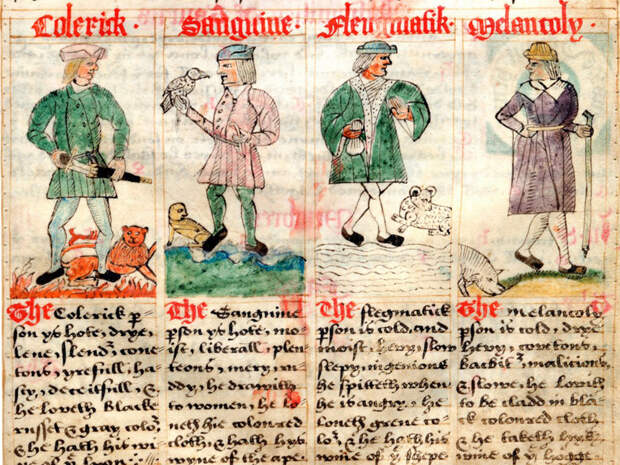 Colerick ·
Sanguine ·
Fleugmatik ·
Melancoly ·
The Colerick p
son ys hote, drye,
lene, slend', coue-
tous, yrefull, ha-
sty, deceitfull, &
he loveth blacke
russet & gray colo'
& he hath hit wi
ne of y lyon
The Sanguine
pson ys hote, mo-
ist, liberall, plen-
teous, mery, ru-
ddy, he drawith
to women, he lo-
ueth hie coloured
cloth, & hath hys
wyne of the ape.
The flegmatick
pson is cold, and
moist hevy, slow
slepy, ingenious
he spitteth when
he is angry, he
loueth grene co
lo', & he hath his
wine of y shepe
The Melancoly
pson is cold, drye
hevy, covetous,
backbit', malicious,
& slowe. he loueth
to be cladd in bla
ck coloured cloth
& he taketh hys
wyne of y hogge